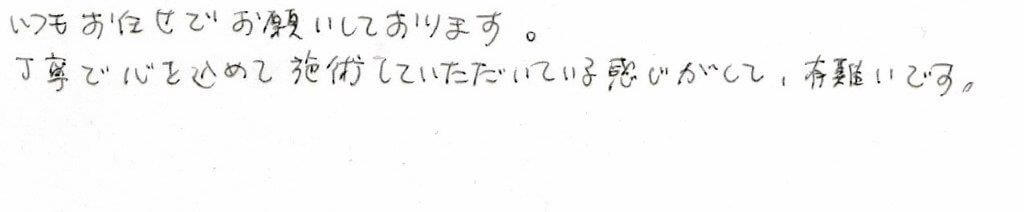 いつもお任せでお願いしております。
丁寧で心を込めて施術していただいている感じがして、有難いです。